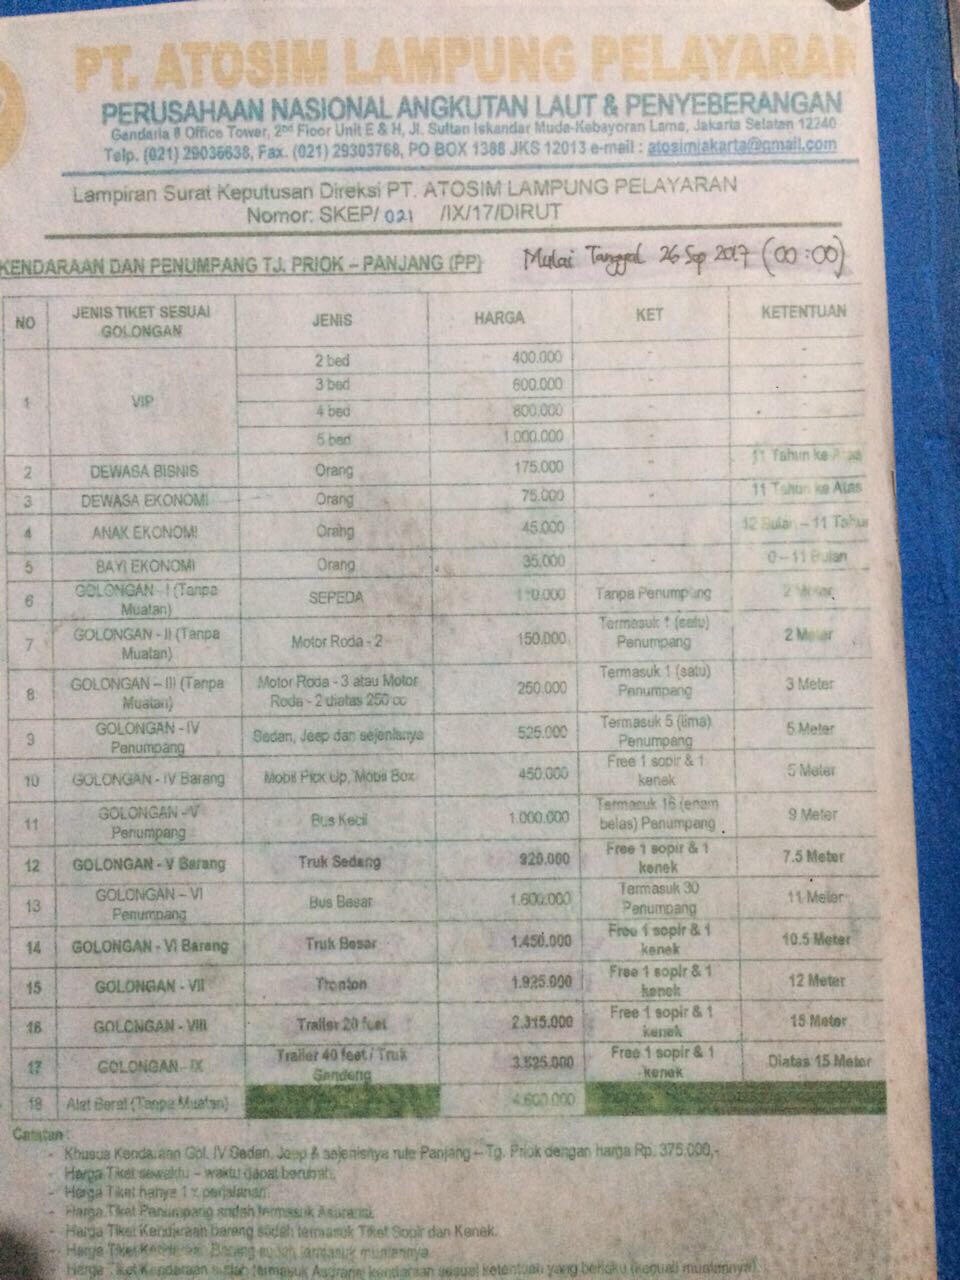 PT. ATOSIM LAMPUNG PELAYARAN
PERUSAHAAN NASIONAL ANGKUTAN LAUT & PENYEBERANGAN
Gandaria 8 Office Tower, 2nd Floor Unit E & H, Jl. Sultan Iskandar Muda-Kebayoran Lama, Jakarta Selatan 12240
Telp. (021) 29036638, Fax. (021) 29303768, PO BOX 1388 JKS 12013 e-mail : atosimjakarta@gmail.com
Lampiran Surat Keputusan Direksi PT. ATOSIM LAMPUNG PELAYARAN
Nomor: SKEP/ 021 /IX/17/DIRUT
KENDARAAN DAN PENUMPANG TJ. PRIOK – PANJANG (PP) Mulai Tanggal 26 Sep 2017 (00:00)
NO JENIS TIKET SESUAI GOLONGAN JENIS HARGA KET KETENTUAN
1 VIP 2 bed 400.000 - -
3 bed 600.000 - -
4 bed 800.000 - -
5 bed 1.000.000 - -
2 DEWASA BISNIS Orang 175.000 - 11 Tahun ke Atas
3 DEWASA EKONOMI Orang 75.000 - 11 Tahun ke Atas
4 ANAK EKONOMI Orang 45.000 - 12 Bulan – 11 Tahun
5 BAYI EKONOMI Orang 35.000 - 0 – 11 Bulan
6 GOLONGAN - I (Tanpa Muatan) SEPEDA Tanpa Penumpang 2 Meter
7 GOLONGAN - II (Tanpa Muatan) Motor Roda - 2 150.000 Termasuk 1 (satu) Penumpang 2 Meter
8 GOLONGAN – III (Tanpa Muatan) Motor Roda - 3 atau Motor Roda - 2 diatas 250 cc 250.000 Termasuk 1 (satu) Penumpang 3 Meter
9 GOLONGAN - IV Penumpang Sedan, Jeep dan sejenisnya 525.000 Termasuk 5 (lima) Penumpang 5 Meter
10 GOLONGAN - IV Barang Mobil Pick Up, Mobil Box 450.000 Free 1 sopir & 1 kenek 5 Meter
11 GOLONGAN - V Penumpang Bus Kecil 1.000.000 Termasuk 16 (enam belas) Penumpang 9 Meter
12 GOLONGAN - V Barang Truk Sedang 920.000 Free 1 sopir & 1 kenek 7.5 Meter
13 GOLONGAN – VI Penumpang Bus Besar 1.600.000 Termasuk 30 Penumpang 11 Meter
14 GOLONGAN - VI Barang Truk Besar 1.450.000 Free 1 sopir & 1 kenek 10.5 Meter
15 GOLONGAN - VII Tronton 1.925.000 Free 1 sopir & 1 kenek 12 Meter
16 GOLONGAN - VIII Trailer 20 feet 2.315.000 Free 1 sopir & 1 kenek 15 Meter
17 GOLONGAN - IX Trailer 40 feet / Truk Gandeng 3.525.000 Free 1 sopir & 1 kenek Diatas 15 Meter
18 Alat Berat (Tanpa Muatan) 4.600.000
Catatan :
- Khusus Kendaraan Gol. IV Sedan, Jeep & sejenisnya rute Panjang – Tg. Priok dengan harga Rp. 375.000,-
- Harga Tiket sewaktu – waktu dapat berubah.
- Harga Tiket hanya 1 x perjalanan.
- Harga Tiket Penumpang sudah termasuk Asuransi.
- Harga Tiket Kendaraan barang sudah termasuk Tiket Sopir dan Kenek.
- Harga Tiket Kendaraan Barang sudah termasuk muatannya.
- Harga Tiket Kendaraan sudah termasuk Asuransi kendaraan sesuai ketentuan yang berlaku (kecuali muatannya).